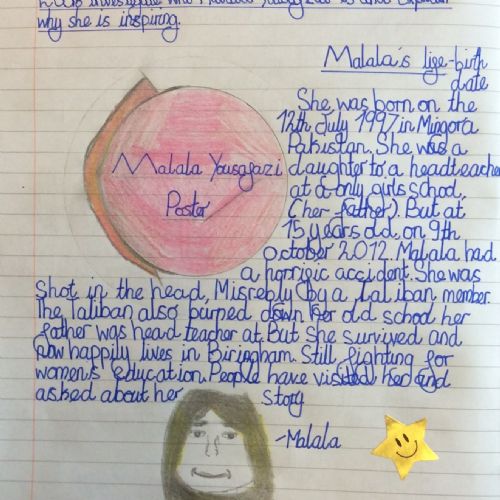 investigate who
why she is inspiring.
Malala's lige-birth
date
She was born on the
12th July 1997 in Mingora
Pakistan. She was a
Malala Yousagazi
daughter to a headteacher
at a only girls school.
Poster
(her father). But at
15 years old, on 9th
october 2012. Malala had
a horrigic accident. She was
Shot in the head, Misrebly by a Taliban member.
The Taliban also burped down her old school her
father was head teacher at. But She survived and
now happily lives in Biringham. Still fighting for
women's education. People have visited her and
asked about her story
-Malala